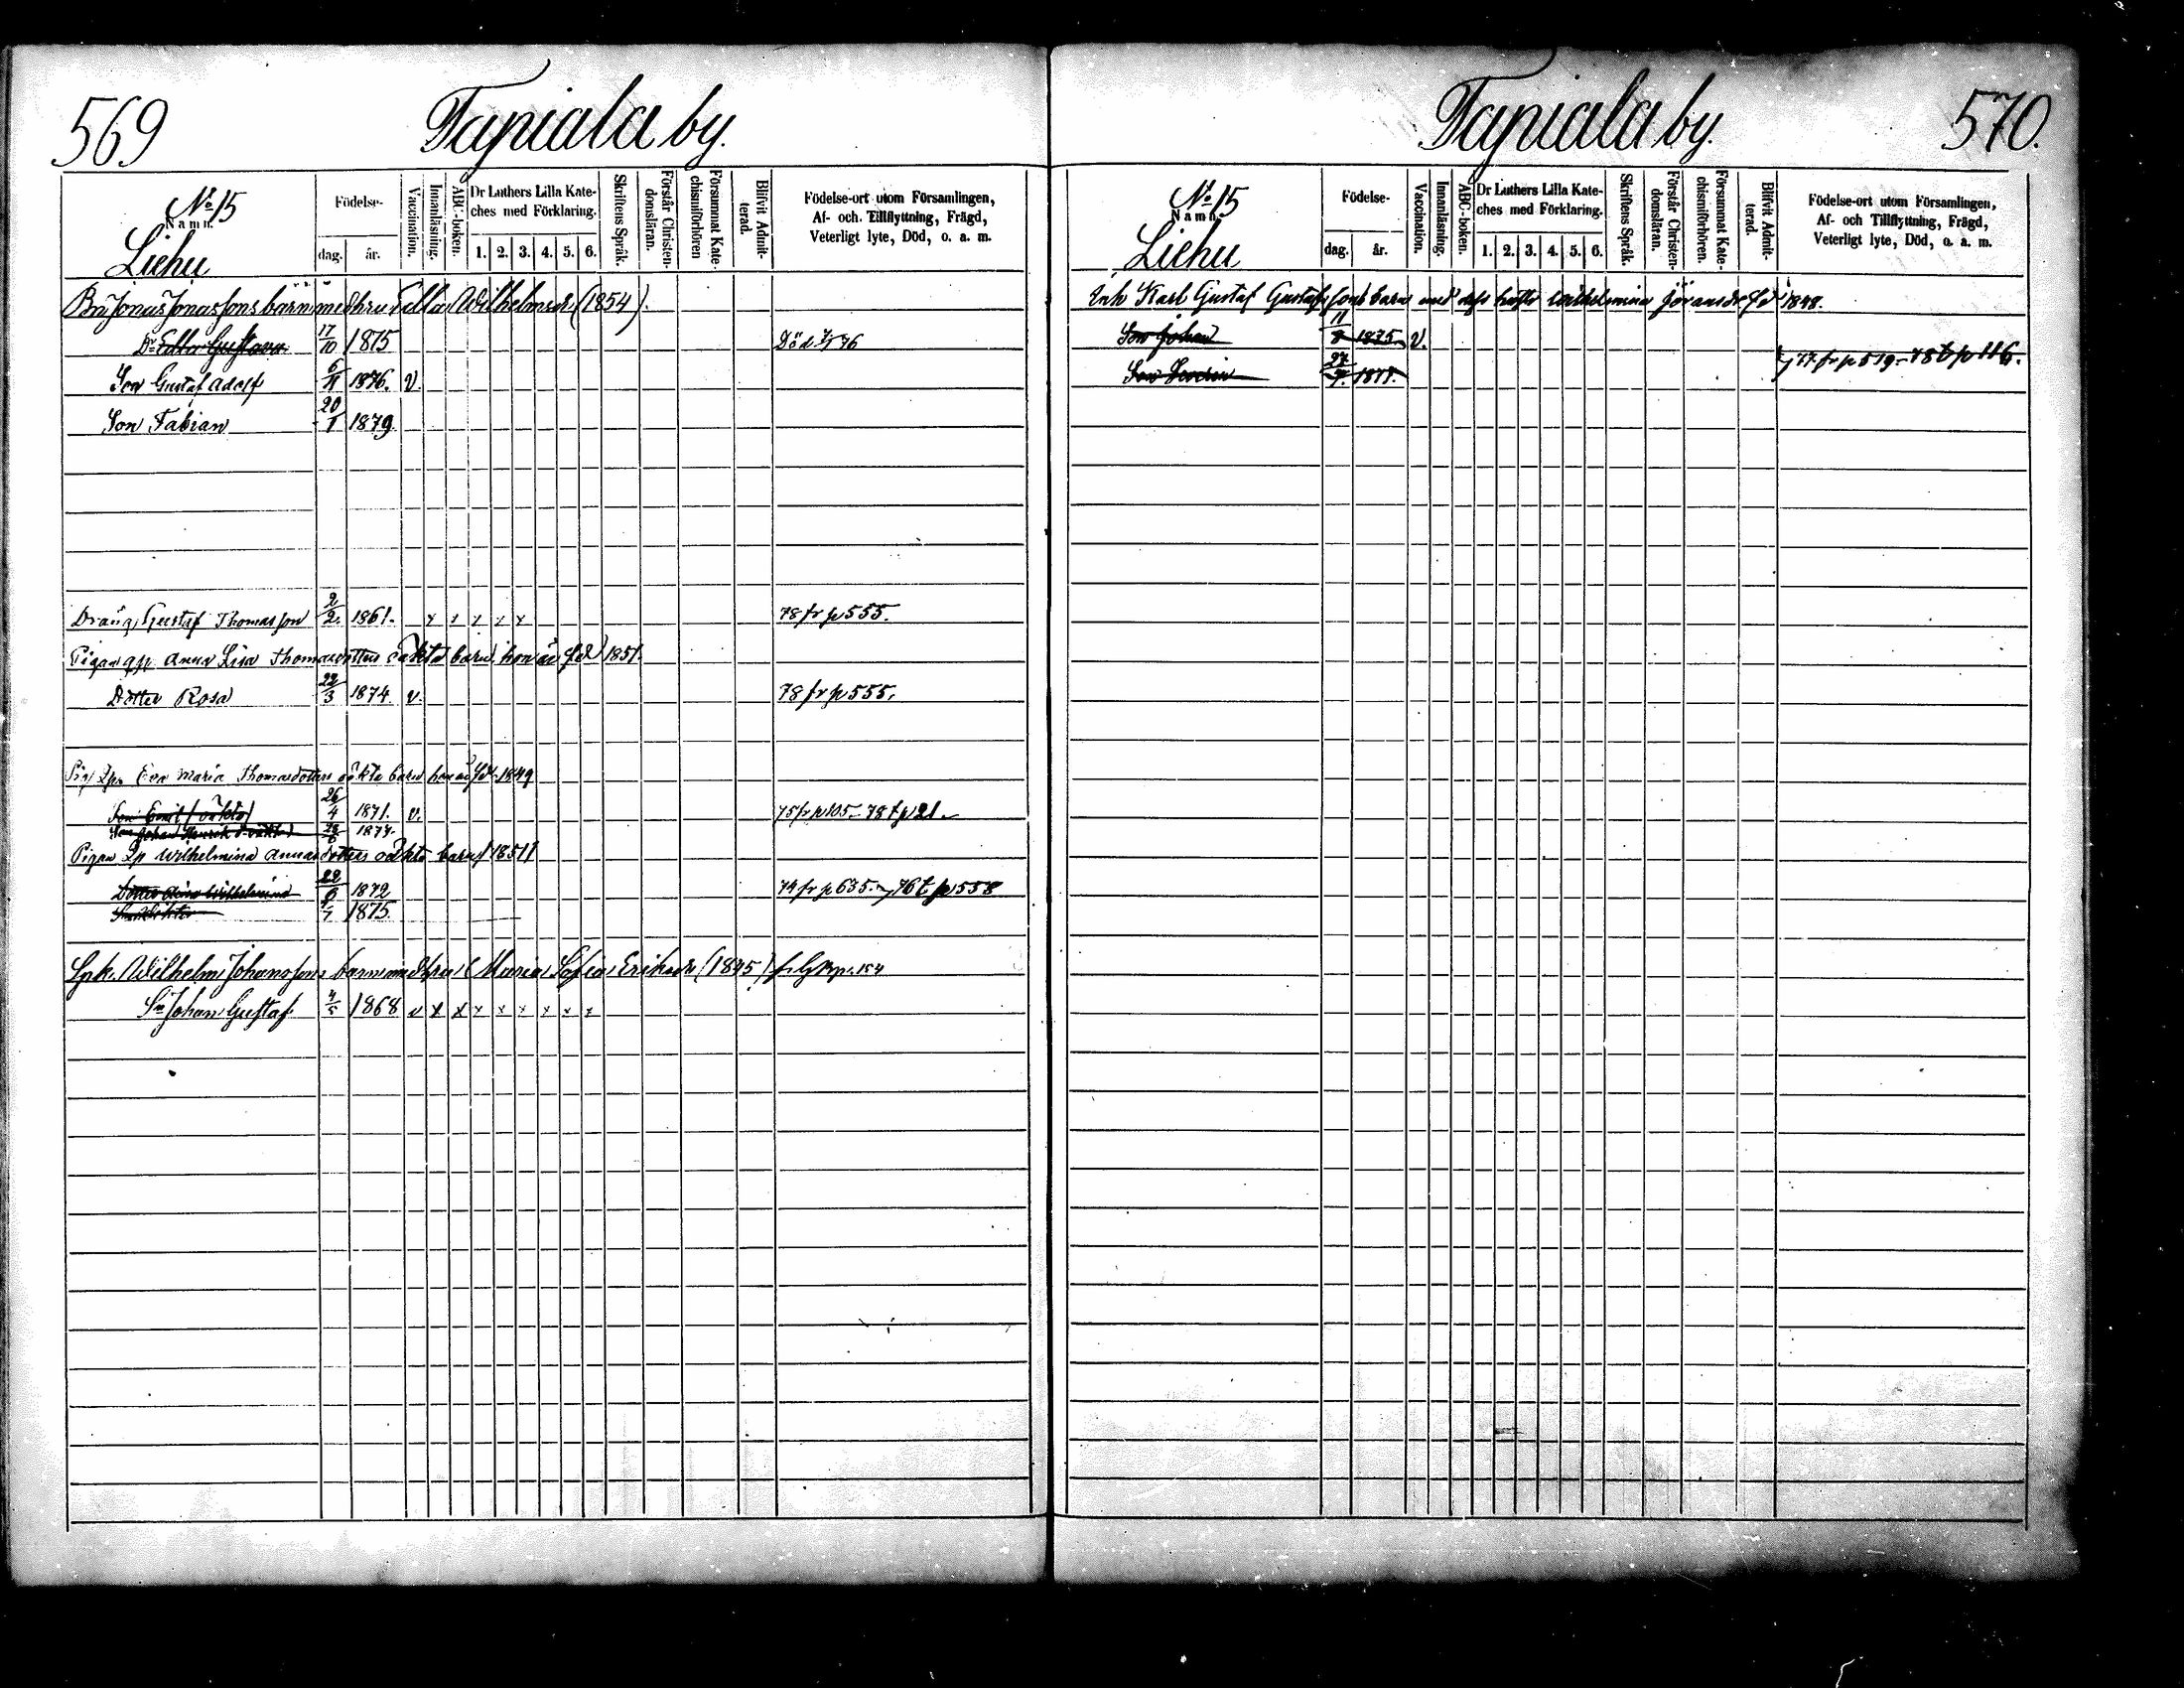 569 Tapiala by.
No 15
Namn.
Liehu
Födelse-
dag. år.
Vaccination.
Innanläsning.
ABC-boken.
Dr Luthers Lilla Kate-
ches med Förklaring.
1. 2. 3. 4. 5. 6.
Skriftens Språk.
Förstår Christen-
domsläran.
Försummat Kate-
chismiförhören
Blifvit Admit-
terad.
Födelse-ort utom Församlingen,
Af- och Tillflyttning, Frägd,
Veterligt lyte, Död, o. a. m.
Jonas Jonassons barn med hru Wilhelmsdr (1854).
Dr Gustava 17/10 1875 Död 76
Son Gustaf Adolf 6/11 1876. v.
Son Fabian 20/1 1879
Dräng Gustaf Thomasson 2/2. 1861. x x x x x 78 fr p 555.
Pigan Anna Lisa Thomasdotters oäkta barn, hon är fdd 1851.
Dotter Rosa 22/3 1874. v. 78 fr p 555.
Eva Maria Thomasdotters oäkta barn hon är fdd 1849
Son Emil (oäkta) 26/4 1871. v. 75 fr p 105 - 78 t p 21.
Son Johan Henrik 1877.
Pigan Wilhelmina Annasdotters oäkta barn (1851)
Dotter Wilhelmina 22 1872 74 fr p 635. 76 t. p 558
1875
Wilhelm Johanssons barn med hru Maria Sofia Eriksdr (1845) 154
Sn Johan Gustaf 4/5 1868 v x x x x x x x x
Tapiala by. 570.
No 15
Namn.
Liehu
Födelse-
dag. år.
Vaccination.
Innanläsning.
ABC-boken.
Dr Luthers Lilla Kate-
ches med Förklaring.
1. 2. 3. 4. 5. 6.
Skriftens Språk.
Förstår Christen-
domsläran.
Försummat Kate-
chismiförhören.
Blifvit Admit-
terad.
Födelse-ort utom Församlingen,
Af- och Tillflyttning, Frägd,
Veterligt lyte, Död, o. a. m.
Inh Karl Gustaf Gustafssons barn med dess hustru Wilhelmina Göransdr fd 1848.
Son Johan 11/8 1875. v.
Son Severin 27 1877. 77 fr p 519 - 78 t p 116.